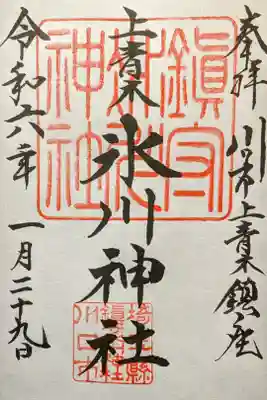 奉拝 川口市上青木鎮座
上青木 氷川神社
令和六年 一月二十九日
鎮守
神社
埼玉縣
川口市